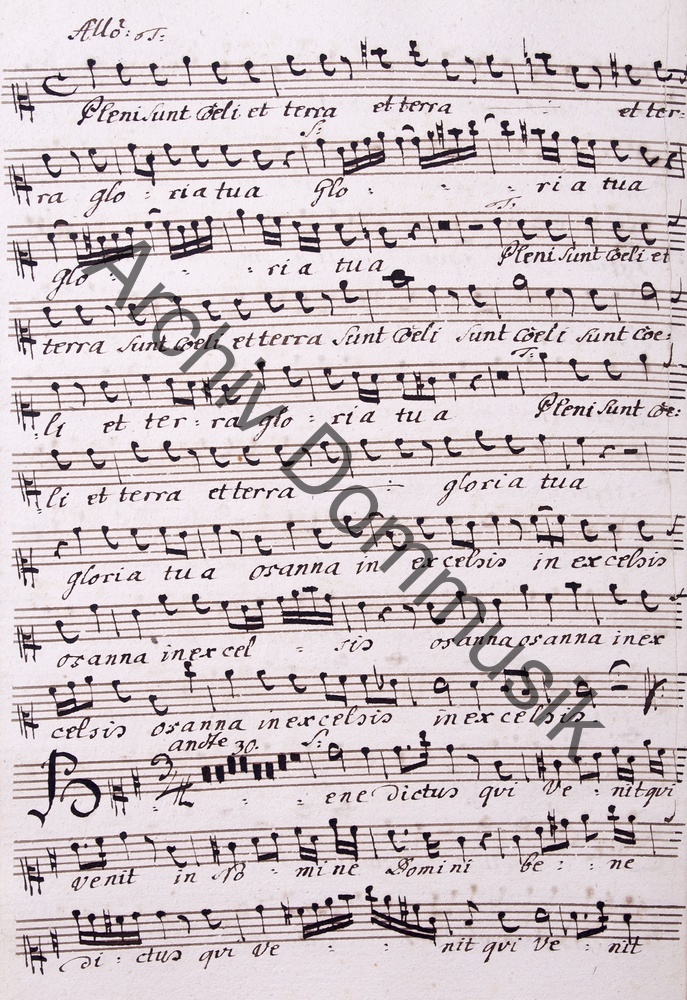 Allo: T:
Pleni sunt Coeli et terra et terra et ter:
S:
ra glo : ria tua Glo : : : ri a tua
T:
glo : : : ri a tua Pleni sunt Coeli et
terra sunt Coeli et terra sunt Coeli sunt Coeli sunt Coe:
T:
li et ter: ra glo : ria tu a Pleni sunt Coe:
li et terra et terra : gloria tua
gloria tu a osanna in excelsis in excelsis
osanna in excel : sis osanna osanna in ex
celsis osanna in excelsis in excelsis.
andte 30. S:
B : : : ene dictus qui Ve : nit qui
venit in No : mi ne Domini be : : ne
di : ctus qui Ve : : : nit qui Ve : nit
Archiv Dommusik